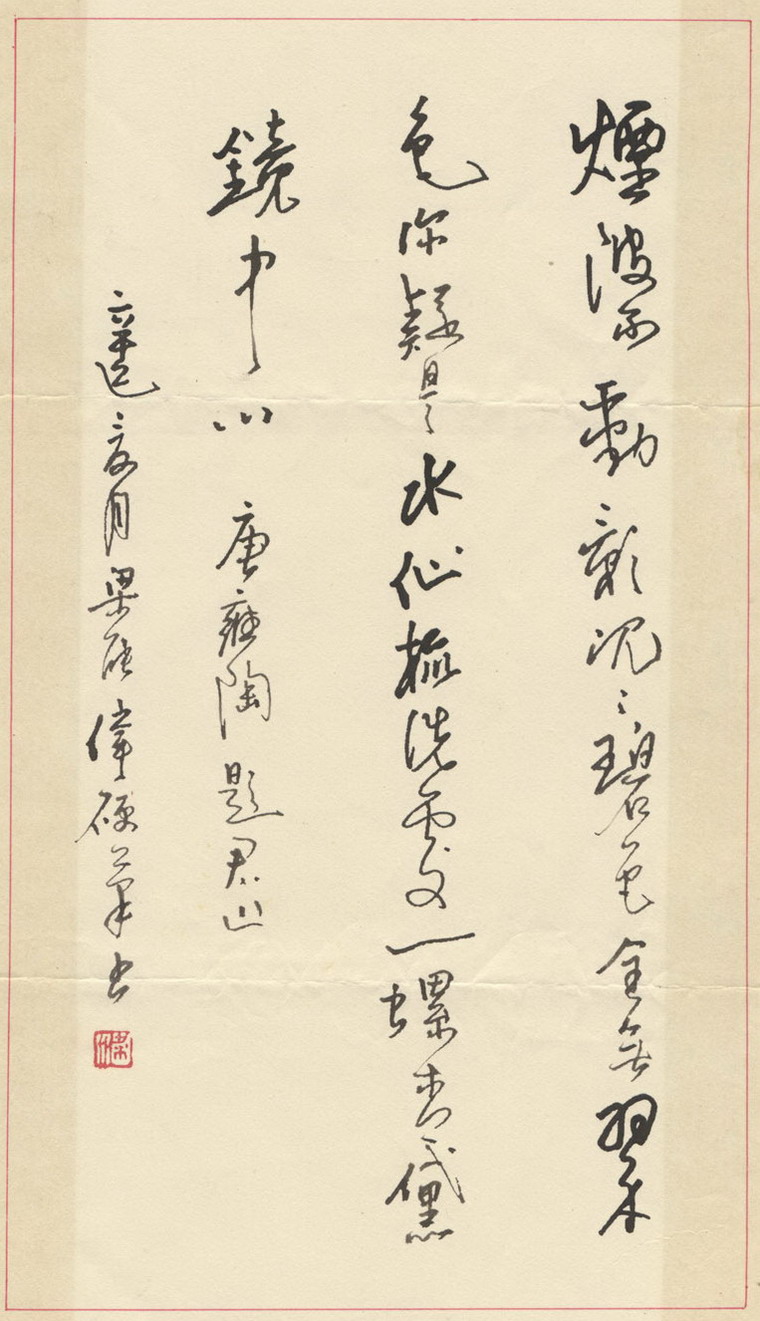 煙波不動影沈々碧色全無翠
色深疑是水仙梳洗處一螺青黛
鏡中心 唐雍陶題君山
辛巳夏月梁偉硬筆書